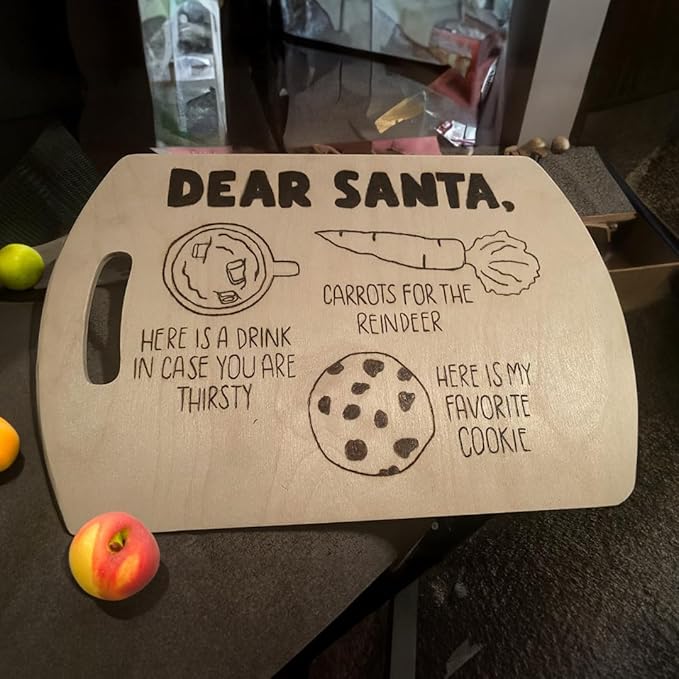 DEAR SANTA,
CARROTS FOR THE
REINDEER
HERE IS A DRINK
IN CASE YOU ARE
THIRSTY
HERE IS MY
FAVORITE
COOKIE